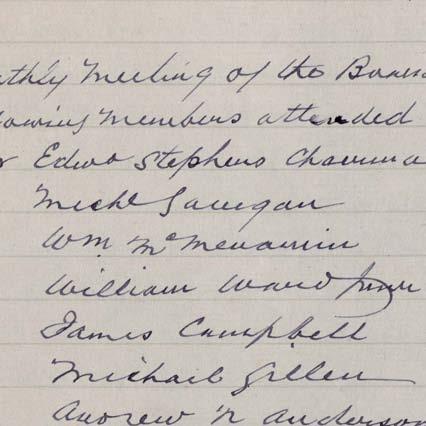 thly Meeting of the Board
lowing Members attended
r Edwd Stephens Chairma
Michl Gavegan
Wm McMenamin
William Ward Junr
James Campbell
Michail Gillen
Andrew N Anderson